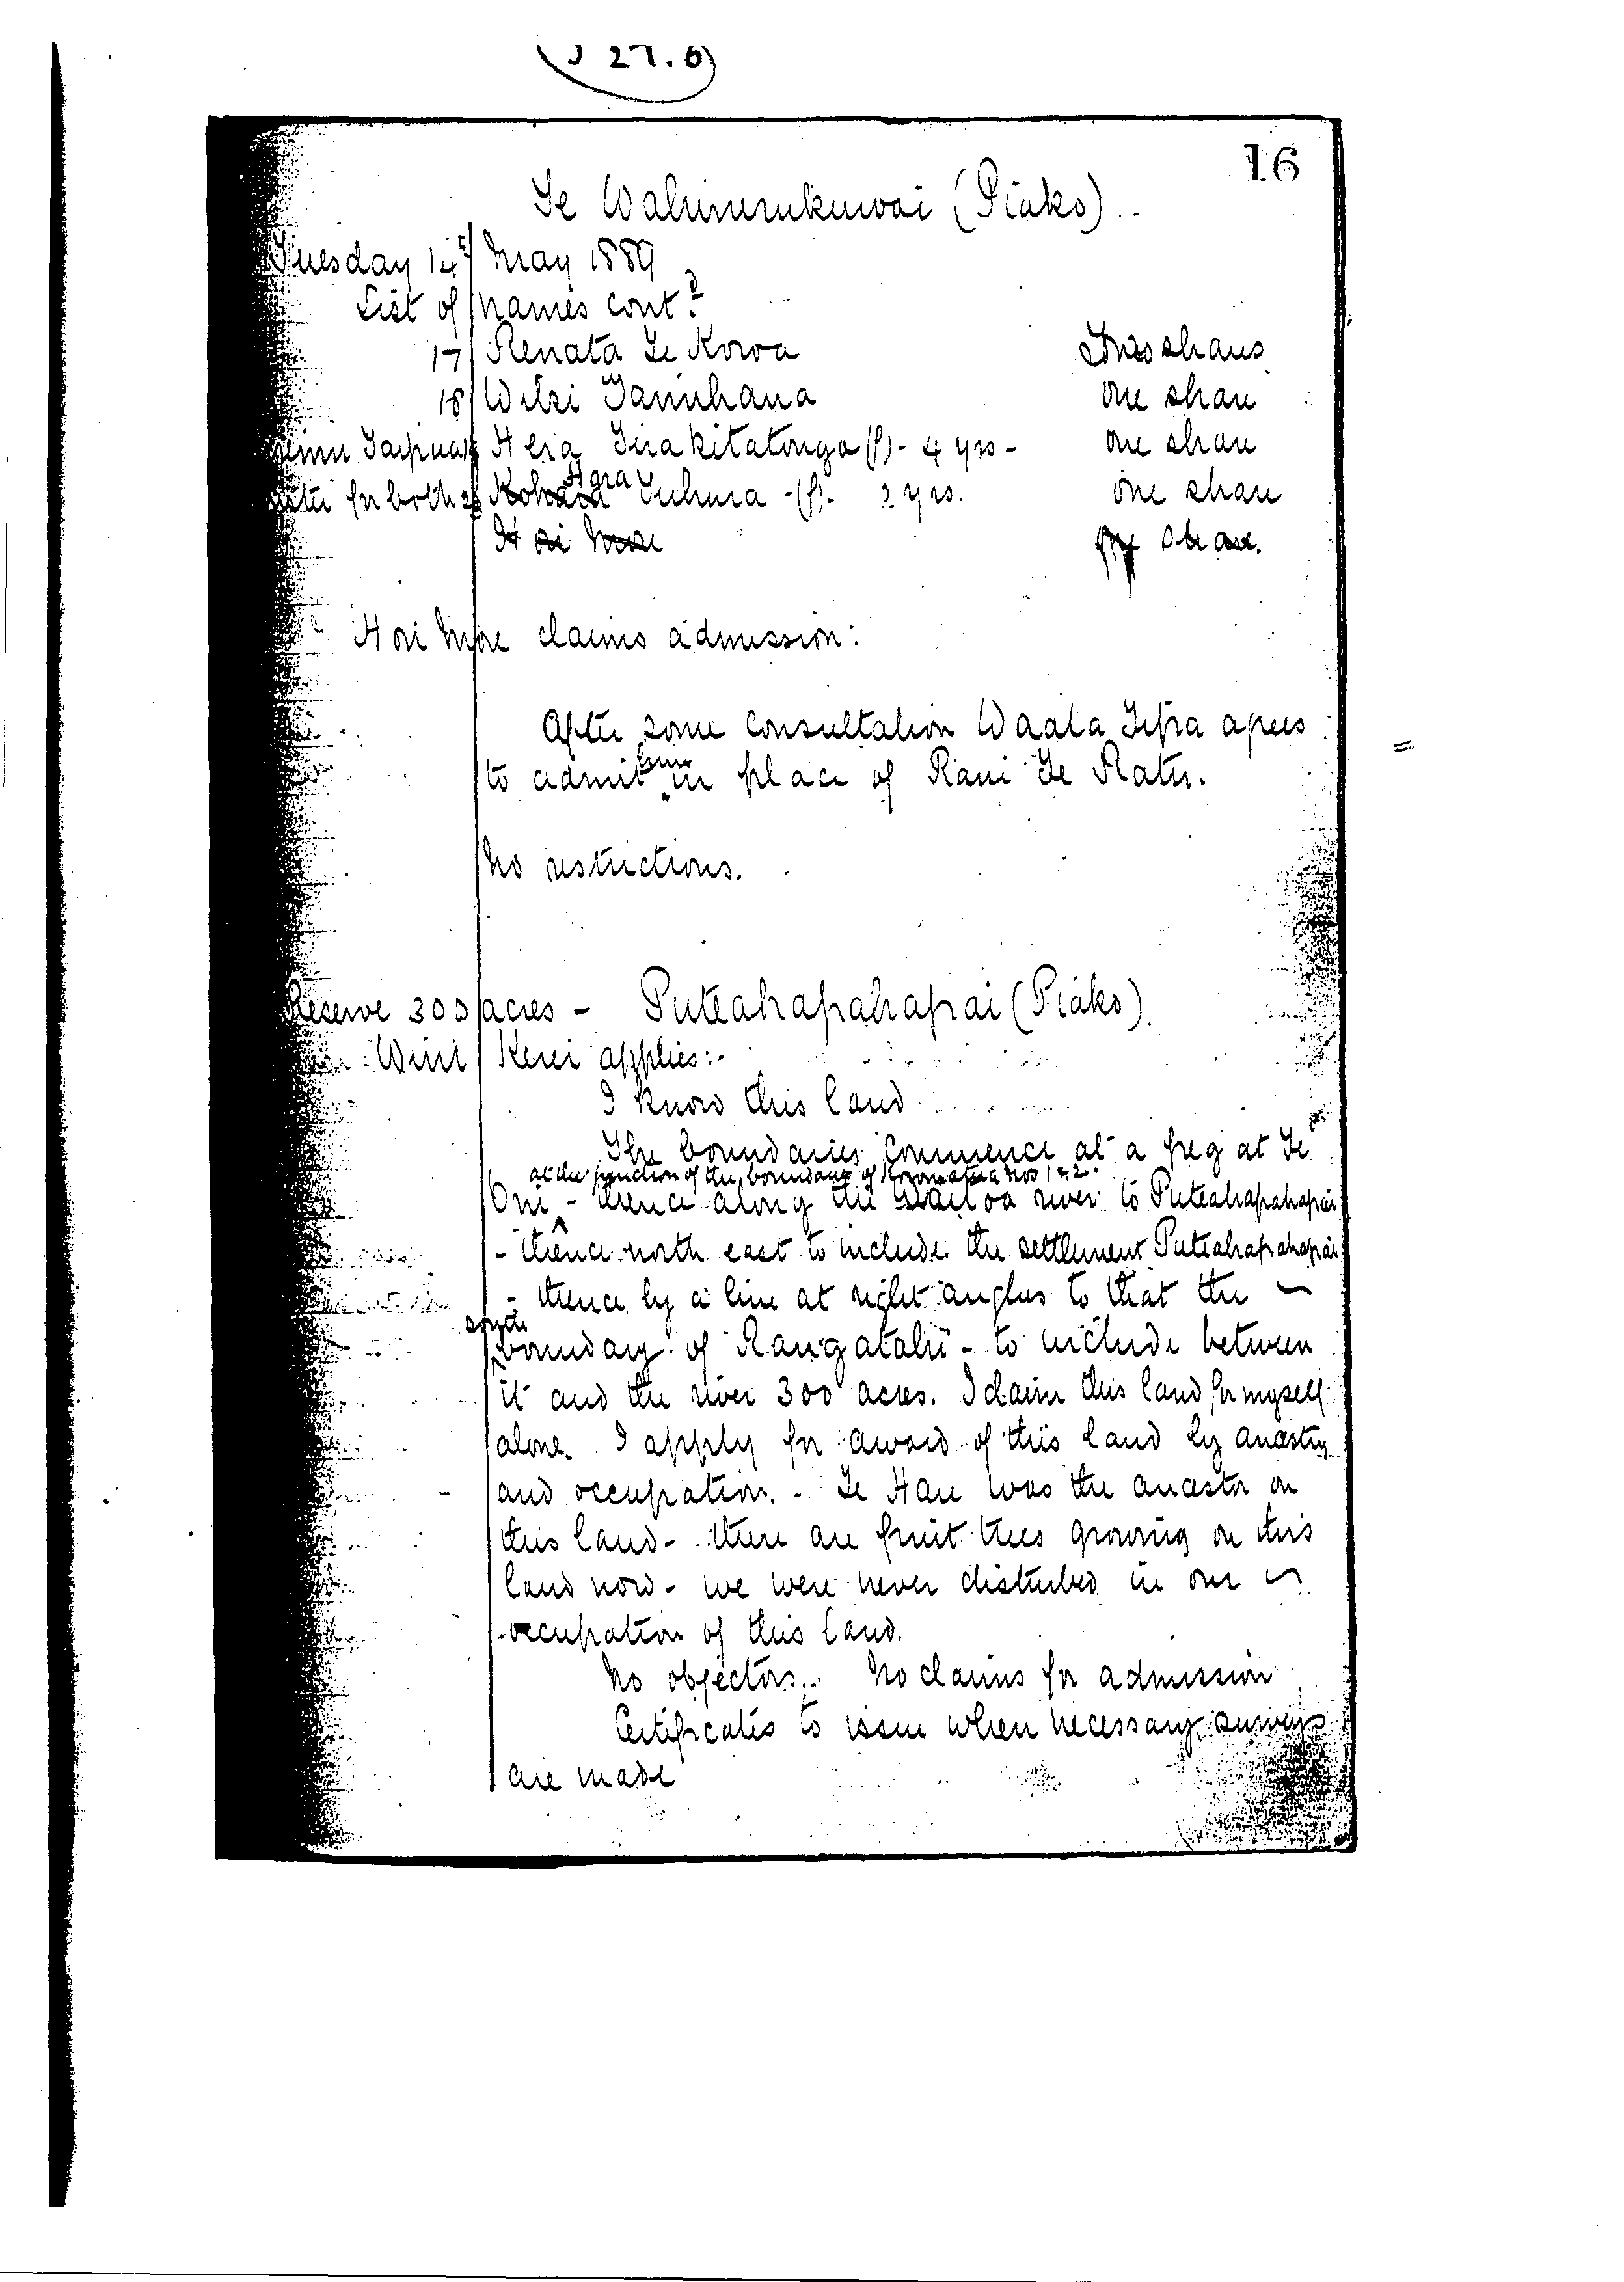 27.6)
16
Te Wahimerukuwai (Piako)
Tuesday 14th May 1889
List of names contd
17 Renata Te Koroa shares
18 Wiki Tamihana one share
Hera Tirakitatonga (f) - 4 yrs - one share
for both of Kohara Hara Tuhura - (f) - 2 yrs. one share
Hori More one share.
Hori More claims admission:
After some consultation Waata Tipa agrees
to admit him in place of Rani Te Ratu.
No restrictions.
Reserve 300 acres - Puteahapahapai (Piako)
Wini Kerei applies:-
I know this land
The boundaries commence at a peg at Te
at the junction of the boundary of Nos 1 & 2.
Oni - thence along the Waitoa river to Puteahapahapai
- thence north east to include the settlement Puteahapahapai
- thence by a line at right angles to that the
south
boundary of Rangatahi - to include between
it and the river 300 acres. I claim this land for myself
alone. I apply for award of this land by ancestry
and occupation. - Te Hau was the ancestor on
this land - there are fruit trees growing on this
land now - we were never disturbed in our
occupation of this land.
No objectors. No claims for admission
Certificates to issue when necessary surveys
are made